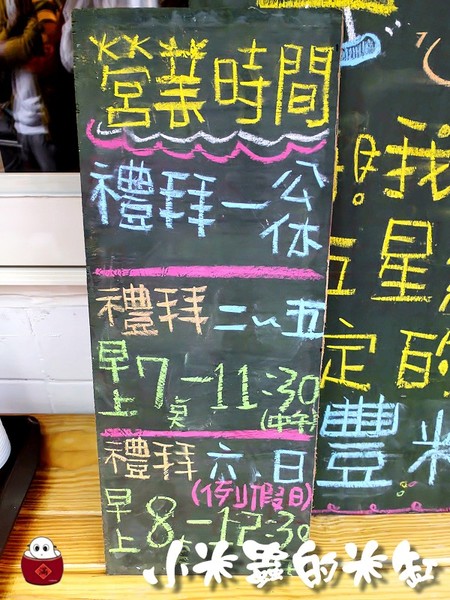 營業時間
禮拜一公休
禮拜二~五
早上7點-11:30
(中午)
禮拜六.日
(例假日)
早上8點-12:30
我
五星
定的
豐
小米蟲的米缸